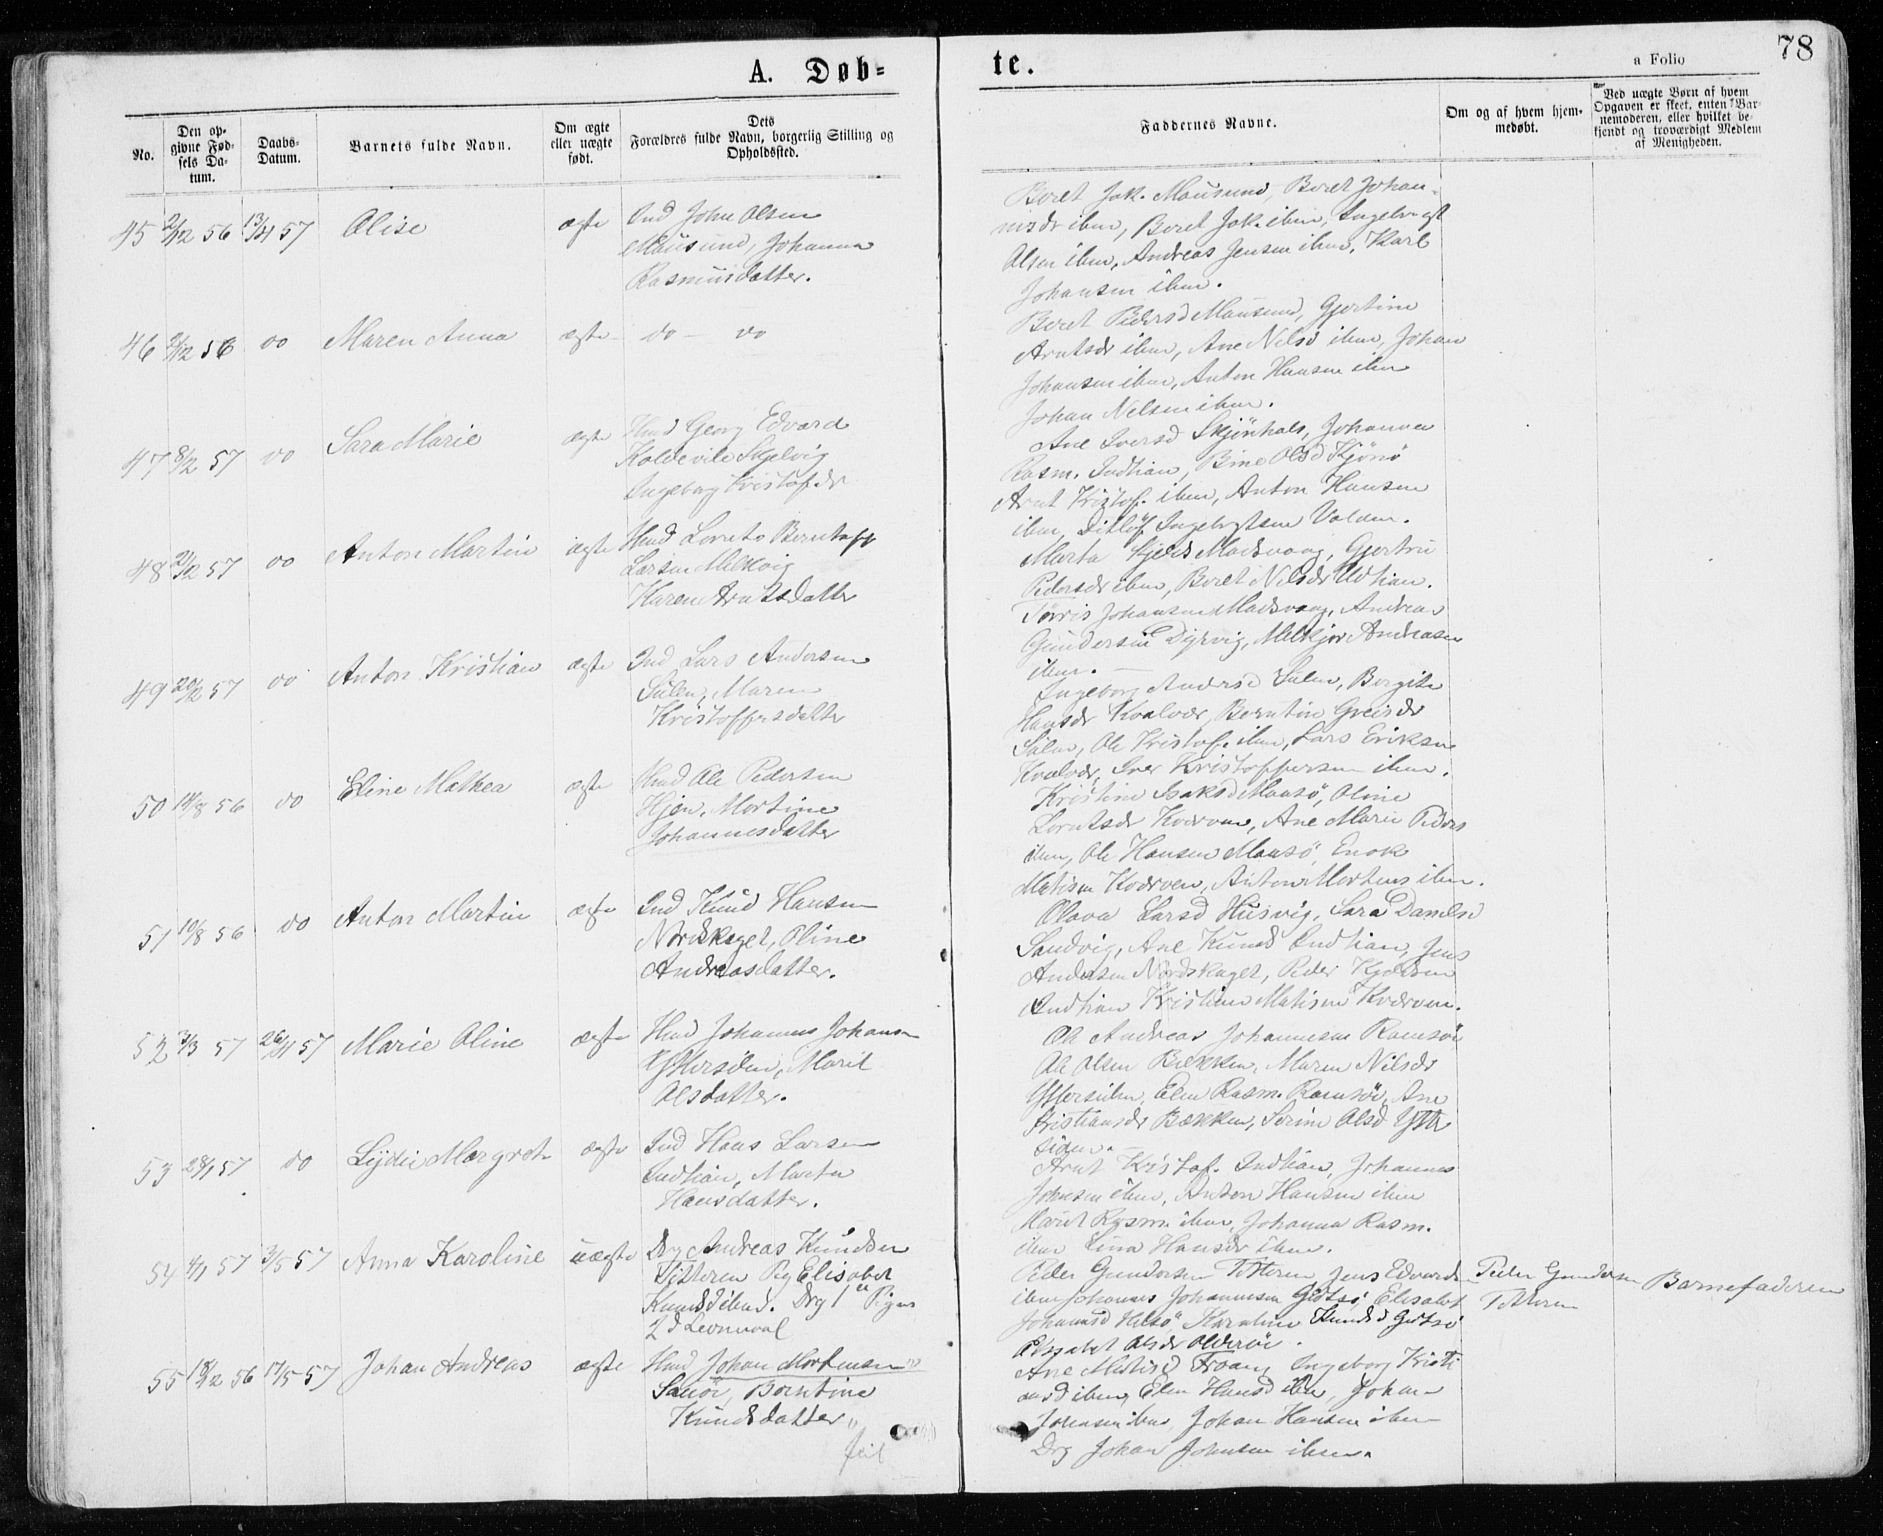 A. Døb=
te.
a Folio
78
No.
Den op-
givne Fød-
sels Da-
tum.
Daabs-
Datum.
Barnets fulde Navn.
Om ægte
eller uægte
født.
Dets
Forældres fulde Navn, borgerlig Stilling og
Opholdssted.
Faddernes Navne.
Om og af hvem hjem-
medøbt.
Ved uægte Børn af hvem
Opgaven er skeet, enten Bar-
nemoderen, eller hvilket be-
kjendt og troværdigt Medlem
af Menigheden.
45 2/12 56 13/4 57 Olise ægte Ind John Olsen
Mausund, Johanna
Rasmusdatter.
Beret Jak. Mausund, Beret Johan-
nisdr ibm, Beret Jak. ibm, Ingebrigt
Olsen ibm, Andreas Jensen ibm, Karl
Johansen ibm.
46 2/12 56 do Maren Anna ægte do do
Beret Pedersd Mausund, Gjertine
Arntsdr ibm, Ane Nelsd ibm, Johan
Johansen ibm, Anton Hansen ibm
Johan Nelsen ibm.
47 8/2 57 do Sara Marie ægte Hmd Georg Edvard
Koldevile Skjelvig
Ingeborg Kristofdr
Ane Iversd Skjønhals, Johanna
Rasm. Indtian, Bine Olsd Kjønsø
Arnt Kristof. ibm, Anton Hansen
ibm, Ditlöf Ingebrigtsen Valden.
48 21/2 57 do Anton Martin ægte Hmd Lornts Berntoft
Larsen Melkvig
Karen Arntsdatter
Marta Kjelsd Madsvaag, Gjertru
Pedersdr ibm, Beret Nilsdr Udtian.
Tørris Johansen Madsvaag, Andreas
Gundersen Dyrvig, Melkjor Andreasen
ibm.
49 20/2 57 do Anton Kristian ægte Ind Lars Andersen
Sulen, Maren
Kristoffersdatter
Ingeborg Andersd Sulen, Bergite
Hansdr Kvalvær, Berntine Greisdr
Sulen, Ole Kristof. ibm, Lars Eriksen
Kvalvær, Iver Kristoffersen ibm.
50 14/8 56 do Eline Mathea ægte Hmd Ole Pedersen
Hjen, Mortine
Johannesdatter
Kristine Isaksd Mausø, Oline
Lorntsdr Kværven, Ane Marie Peders
ibm, Ole Hansen Mausø, Enok
Matisen Kværven, Anton Mortens ibm.
51 10/8 56 do Anton Martin ægte Ind Knud Hansen
Nordskaget, Oline
Andreasdatter.
Olava Larsd Husvig, Sara Danielsd
Sandvig, Ane Knuds Indtian, Jens
Andersen Nordskaget, Peder Kjeldsen
Indtian Kristian Matisen Kværven.
52 3/3 57 26/4 57 Marie Oline ægte Hmd Johannes Johansen
Yttersiden, Marit
Olsdatter.
Ole Andreas Johannesen Ramsøi
Ole Olsen Bekken, Maren Nilsdr
Yttersiden, Elen Rasm. Ramsøi, Ane
Kristiansdr Bækken, Serine Olsd Ytter
siden.
53 28/1 57 do Lydie Margret ægte Ind Hans Larsen
Indtian, Marta
Hansdatter.
Arnt Kristof. Indtian, Johannes
Johnsen ibm, Anton Hansen ibm
Marit Rasm. ibm, Johanna Rasm.
ibm Lina Hansdr ibm.
54 4/1 57 3/5 57 Anna Karoline uægte Drg Andreas Knudsen
Titteren Pig Elisabet
Knudsd ibid. Drg 1ste Pigens
2d Leiermaal
Peder Gundersen Titteren, Jens Edvardsen
ibm Johannes Johannesen Gjøtsø, Elisabet
Johannsd Helsø Karoline Knudsd Gjøtsø
Elisabet Olsdr Olderøi.
Peder Gundersen
Titteren
Barnefaderen
55 18/12 56 17/5 57 Johan Andreas ægte Hmd Johan Mortensen
Sauøi, Berntine
Knudsdatter
feil
Ane Matisd Froang Ingeborg Kristi
ansd ibm, Elen Hansd ibm, Johan
Johnsen ibm Johan Hansen ibm
Drg Johan Johnsen ibm.